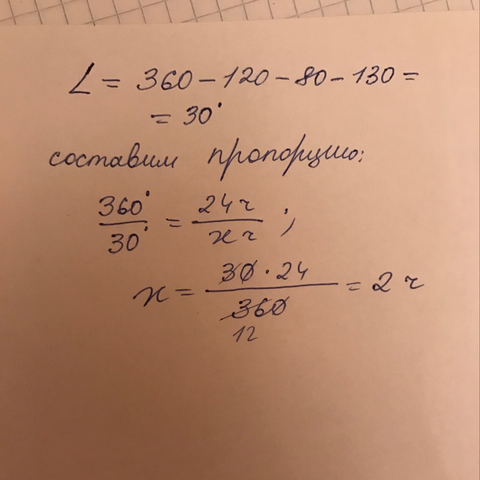 ∠ = 360 – 120 – 80 – 130 =
= 30°
составим пропорцию:
360°/30° = 24ч/xч ;
x = 30 · 24/360 = 2 ч
12